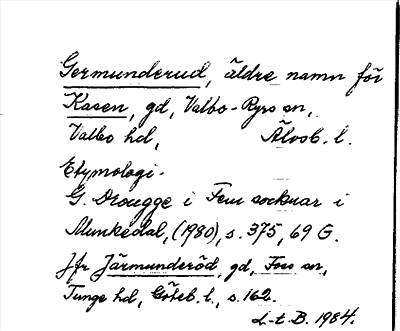 Germunderud, äldre namn för
Kasen, gd, Valbo-Ryrs sn,
Valbo hd, Älvsb. l.
Etymologi.
G. Drougge i Fem socknar i
Munkedal, (1980), s. 375, 69 G.
Jfr Järmunderöd, gd, Foss sn,
Tunge hd, Göteb. l., s. 162.
L-t. B. 1984.